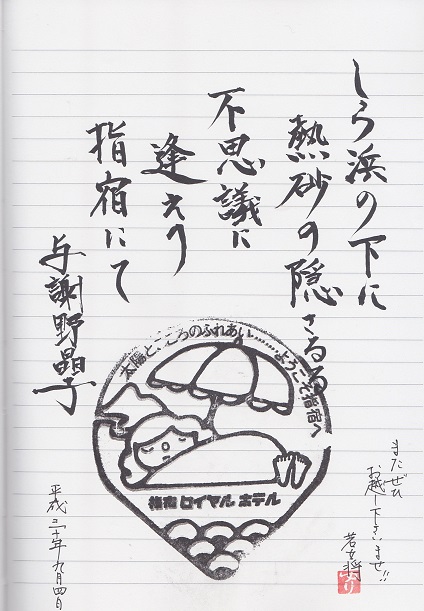 しら浜の下に
熱砂の隠さるる
不思議に
逢えり
指宿にて
与謝野晶子
太陽と、こころのふれあい……ようこそ指宿へ
指宿ロイヤルホテル
またぜひ
お越し下さいませ!!
若女将
平成三十年九月四日